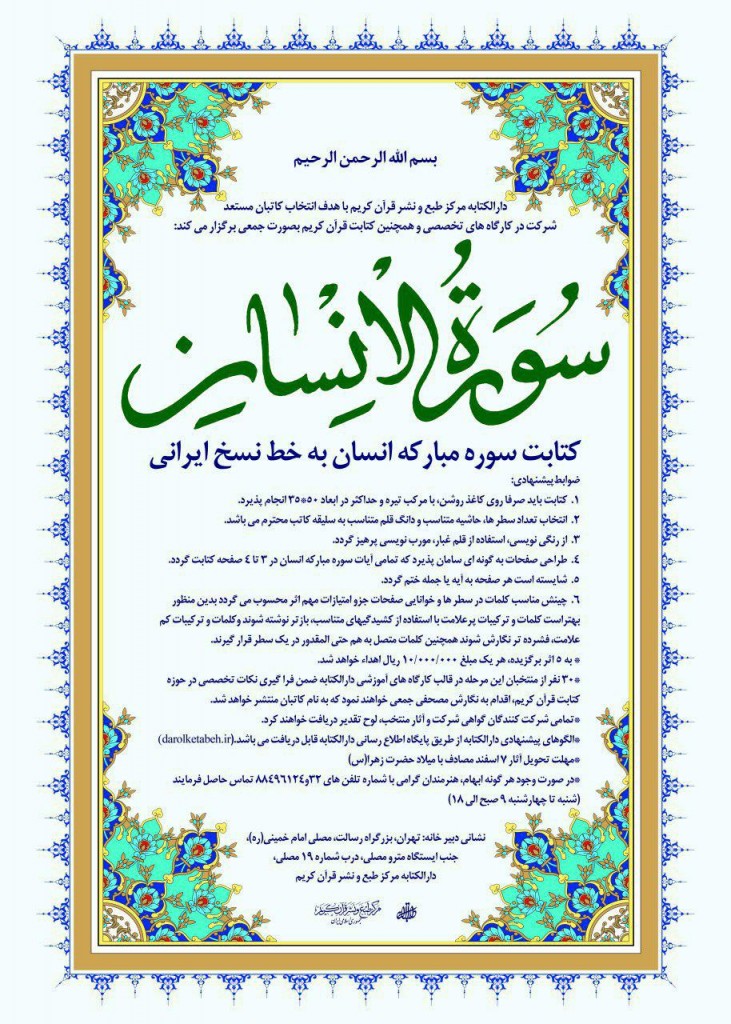 بسم الله الرحمن الرحیم
دارالکتابه مرکز طبع و نشر قرآن کریم با هدف انتخاب کاتبان مستعد
شرکت در کارگاه های تخصصی و همچنین کتابت قرآن کریم بصورت جمعی برگزار می کند:
سُورَةُ الْاِنِسٰانِ
کتابت سوره مبارکه انسان به خط نسخ ایرانی
ضوابط پیشنهادی:
۱. کتابت باید صرفا روی کاغذ روشن، با مرکب تیره و حداکثر در ابعاد ۵۰*۳۵ انجام پذیرد.
۲. انتخاب تعداد سطر ها، حاشیه متناسب و دانگ قلم متناسب به سلیقه کاتب محترم می باشد.
۳. از رنگی نویسی، استفاده از قلم غبار، مورب نویسی پرهیز گردد.
٤. طراحی صفحات به گونه ای سامان پذیرد که تمامی آیات سوره مبارکه انسان در ۳ تا ٤ صفحه کتابت گردد.
۵. شایسته است هر صفحه به آیه یا جمله ختم گردد.
۶. چینش مناسب کلمات در سطر ها و خوانایی صفحات جزو امتیازات مهم اثر محسوب می گردد بدین منظور
بهتراست کلمات و ترکیبات پرعلامت با استفاده از کشیدگیهای متناسب، بازتر نوشته شوند وکلمات و ترکیبات کم
علامت، فشرده تر نگارش شوند همچنین کلمات متصل به هم حتی المقدور در یک سطر قرار گیرند.
* به ۵ اثر برگزیده، هر یک مبلغ ۱۰/۰۰۰/۰۰۰ ریال اهداء خواهد شد.
*۳۰ نفر از منتخبان این مرحله در قالب کارگاه های آموزشی دارالکتابه ضمن فرا گیری نکات تخصصی در حوزه
کتابت قرآن کریم، اقدام به نگارش مصحفی جمعی خواهند نمود که به نام کاتبان منتشر خواهد شد.
*تمامی شرکت کنندگان گواهی شرکت و آثار منتخب، لوح تقدیر دریافت خواهند کرد.
*الگوهای پیشنهادی دارالکتابه از طریق پایگاه اطلاع رسانی دارالکتابه قابل دریافت می باشد.(darolketabeh.ir)
*مهلت تحویل آثار ۷ اسفند مصادف با میلاد حضرت زهرا(س)
*در صورت وجود هر گونه ابهام، هنرمندان گرامی با شماره تلفن های ۳۲و۸۸٤۹۶۱۲٤ تماس حاصل فرمایند
(شنبه تا چهارشنبه ۹ صبح الی ۱۸)
نشانی دبیر خانه: تهران، بزرگراه رسالت، مصلی امام خمینی(ره)،
جنب ایستگاه مترو مصلی، درب شماره ۱۹ مصلی،
دارالکتابه مرکز طبع و نشر قرآن کریم
مرکز طبع و نشر قرآن کریم
جمهوری اسلامی ایران